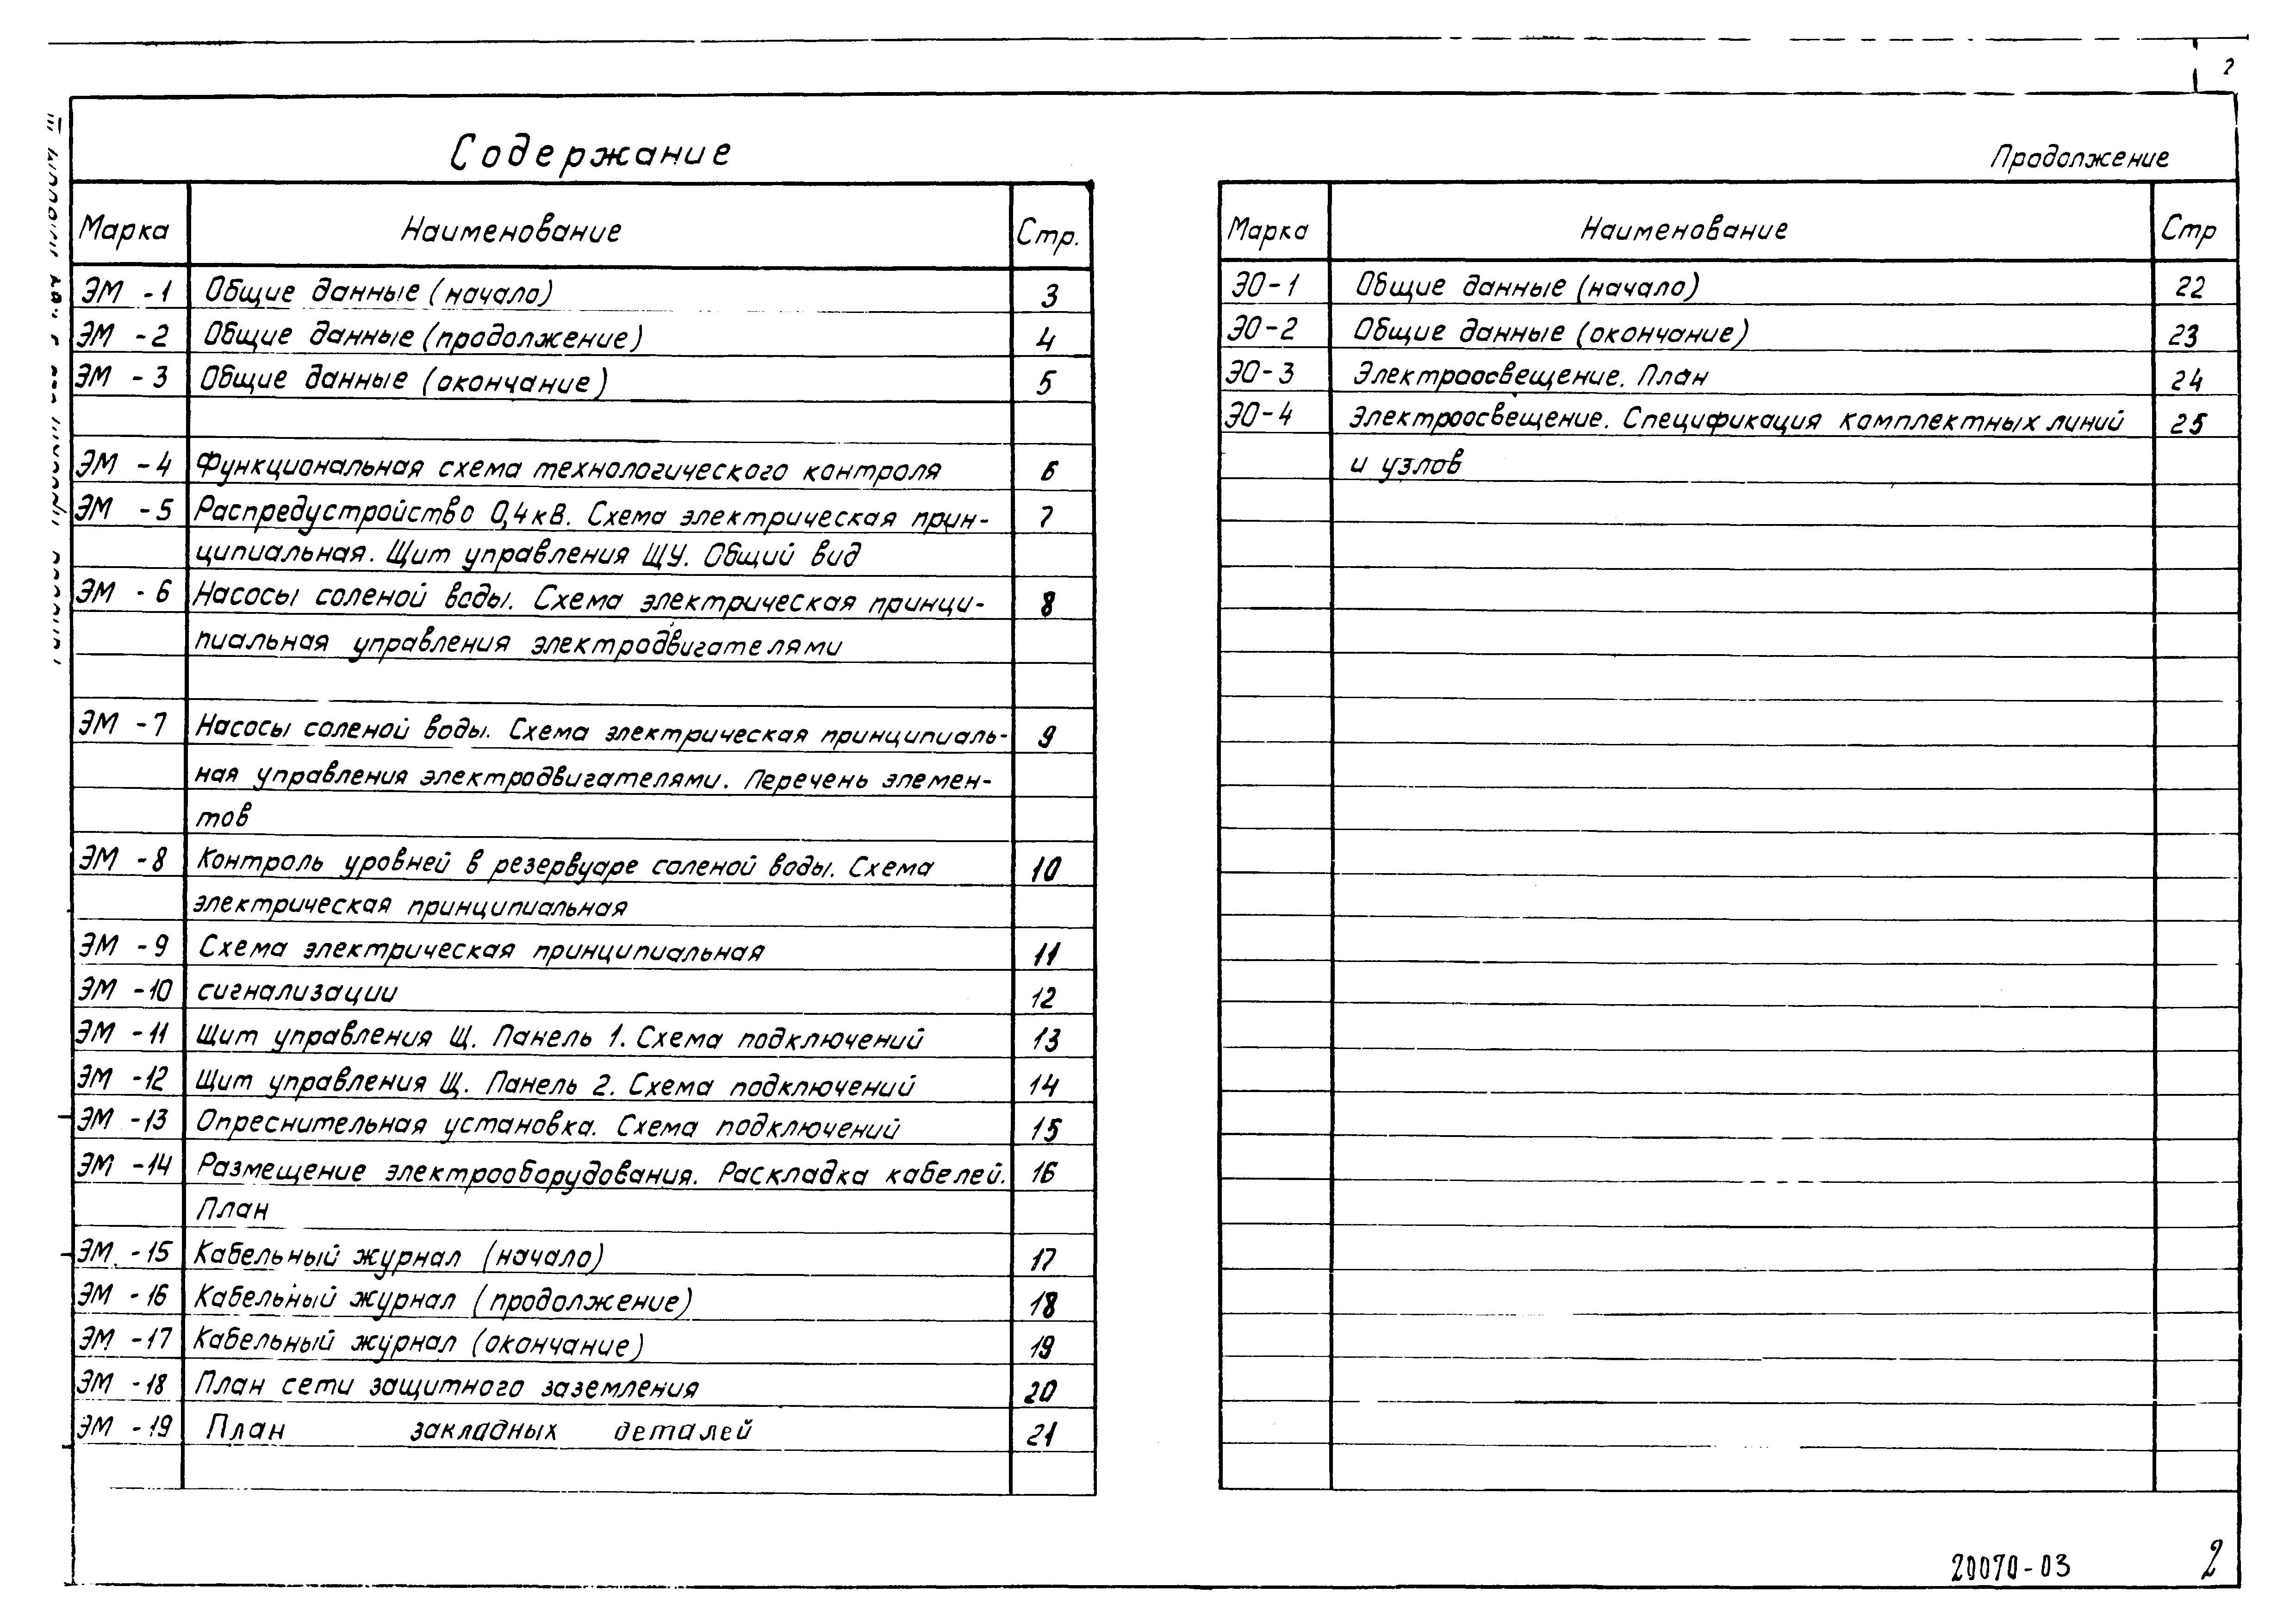 2
Содержание
Марка Наименование Стр.
ЭМ -1 Общие данные (начало) 3
ЭМ -2 Общие данные (продолжение) 4
ЭМ -3 Общие данные (окончание) 5
ЭМ -4 Функциональная схема технологического контроля 6
ЭМ -5 Распредустройство 0,4кВ. Схема электрическая прин- 7
ципиальная. Щит управления ЩУ. Общий вид
ЭМ -6 Насосы соленой воды. Схема электрическая принци- 8
пиальная управления электродвигателями
ЭМ -7 Насосы соленой воды. Схема электрическая принципиаль- 9
ная управления электродвигателями. Перечень элемен-
тов
ЭМ -8 Контроль уровней в резервуаре соленой воды. Схема 10
электрическая принципиальная
ЭМ -9 Схема электрическая принципиальная 11
ЭМ -10 сигнализации 12
ЭМ -11 Щит управления Щ. Панель 1. Схема подключений 13
ЭМ -12 Щит управления Щ. Панель 2. Схема подключений 14
ЭМ -13 Опреснительная установка. Схема подключений 15
ЭМ -14 Размещение электрооборудования. Раскладка кабелей. 16
План
ЭМ -15 Кабельный журнал (начало) 17
ЭМ -16 Кабельный журнал (продолжение) 18
ЭМ -17 Кабельный журнал (окончание) 19
ЭМ -18 План сети защитного заземления 20
ЭМ -19 План закладных деталей 21
Продолжение
Марка Наименование Стр
ЭО-1 Общие данные (начало) 22
ЭО-2 Общие данные (окончание) 23
ЭО-3 Электроосвещение. План 24
ЭО-4 Электроосвещение. Спецификация комплектных линий 25
и узлов
20070-03 2